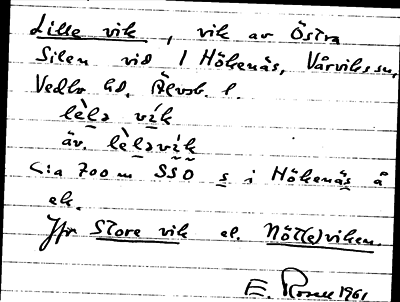 Lille vik, vik av Östra
Silen vid 1 Hökenäs, Vårviks sn,
Vedbo hd. Älvsb. l.
lèlə vík
äv. lèləvík
C:a 700 m SSO s i Hökenäs å
ek.
Jfr Store vik el. Nöt(e)viken.
E. Rosell 1961